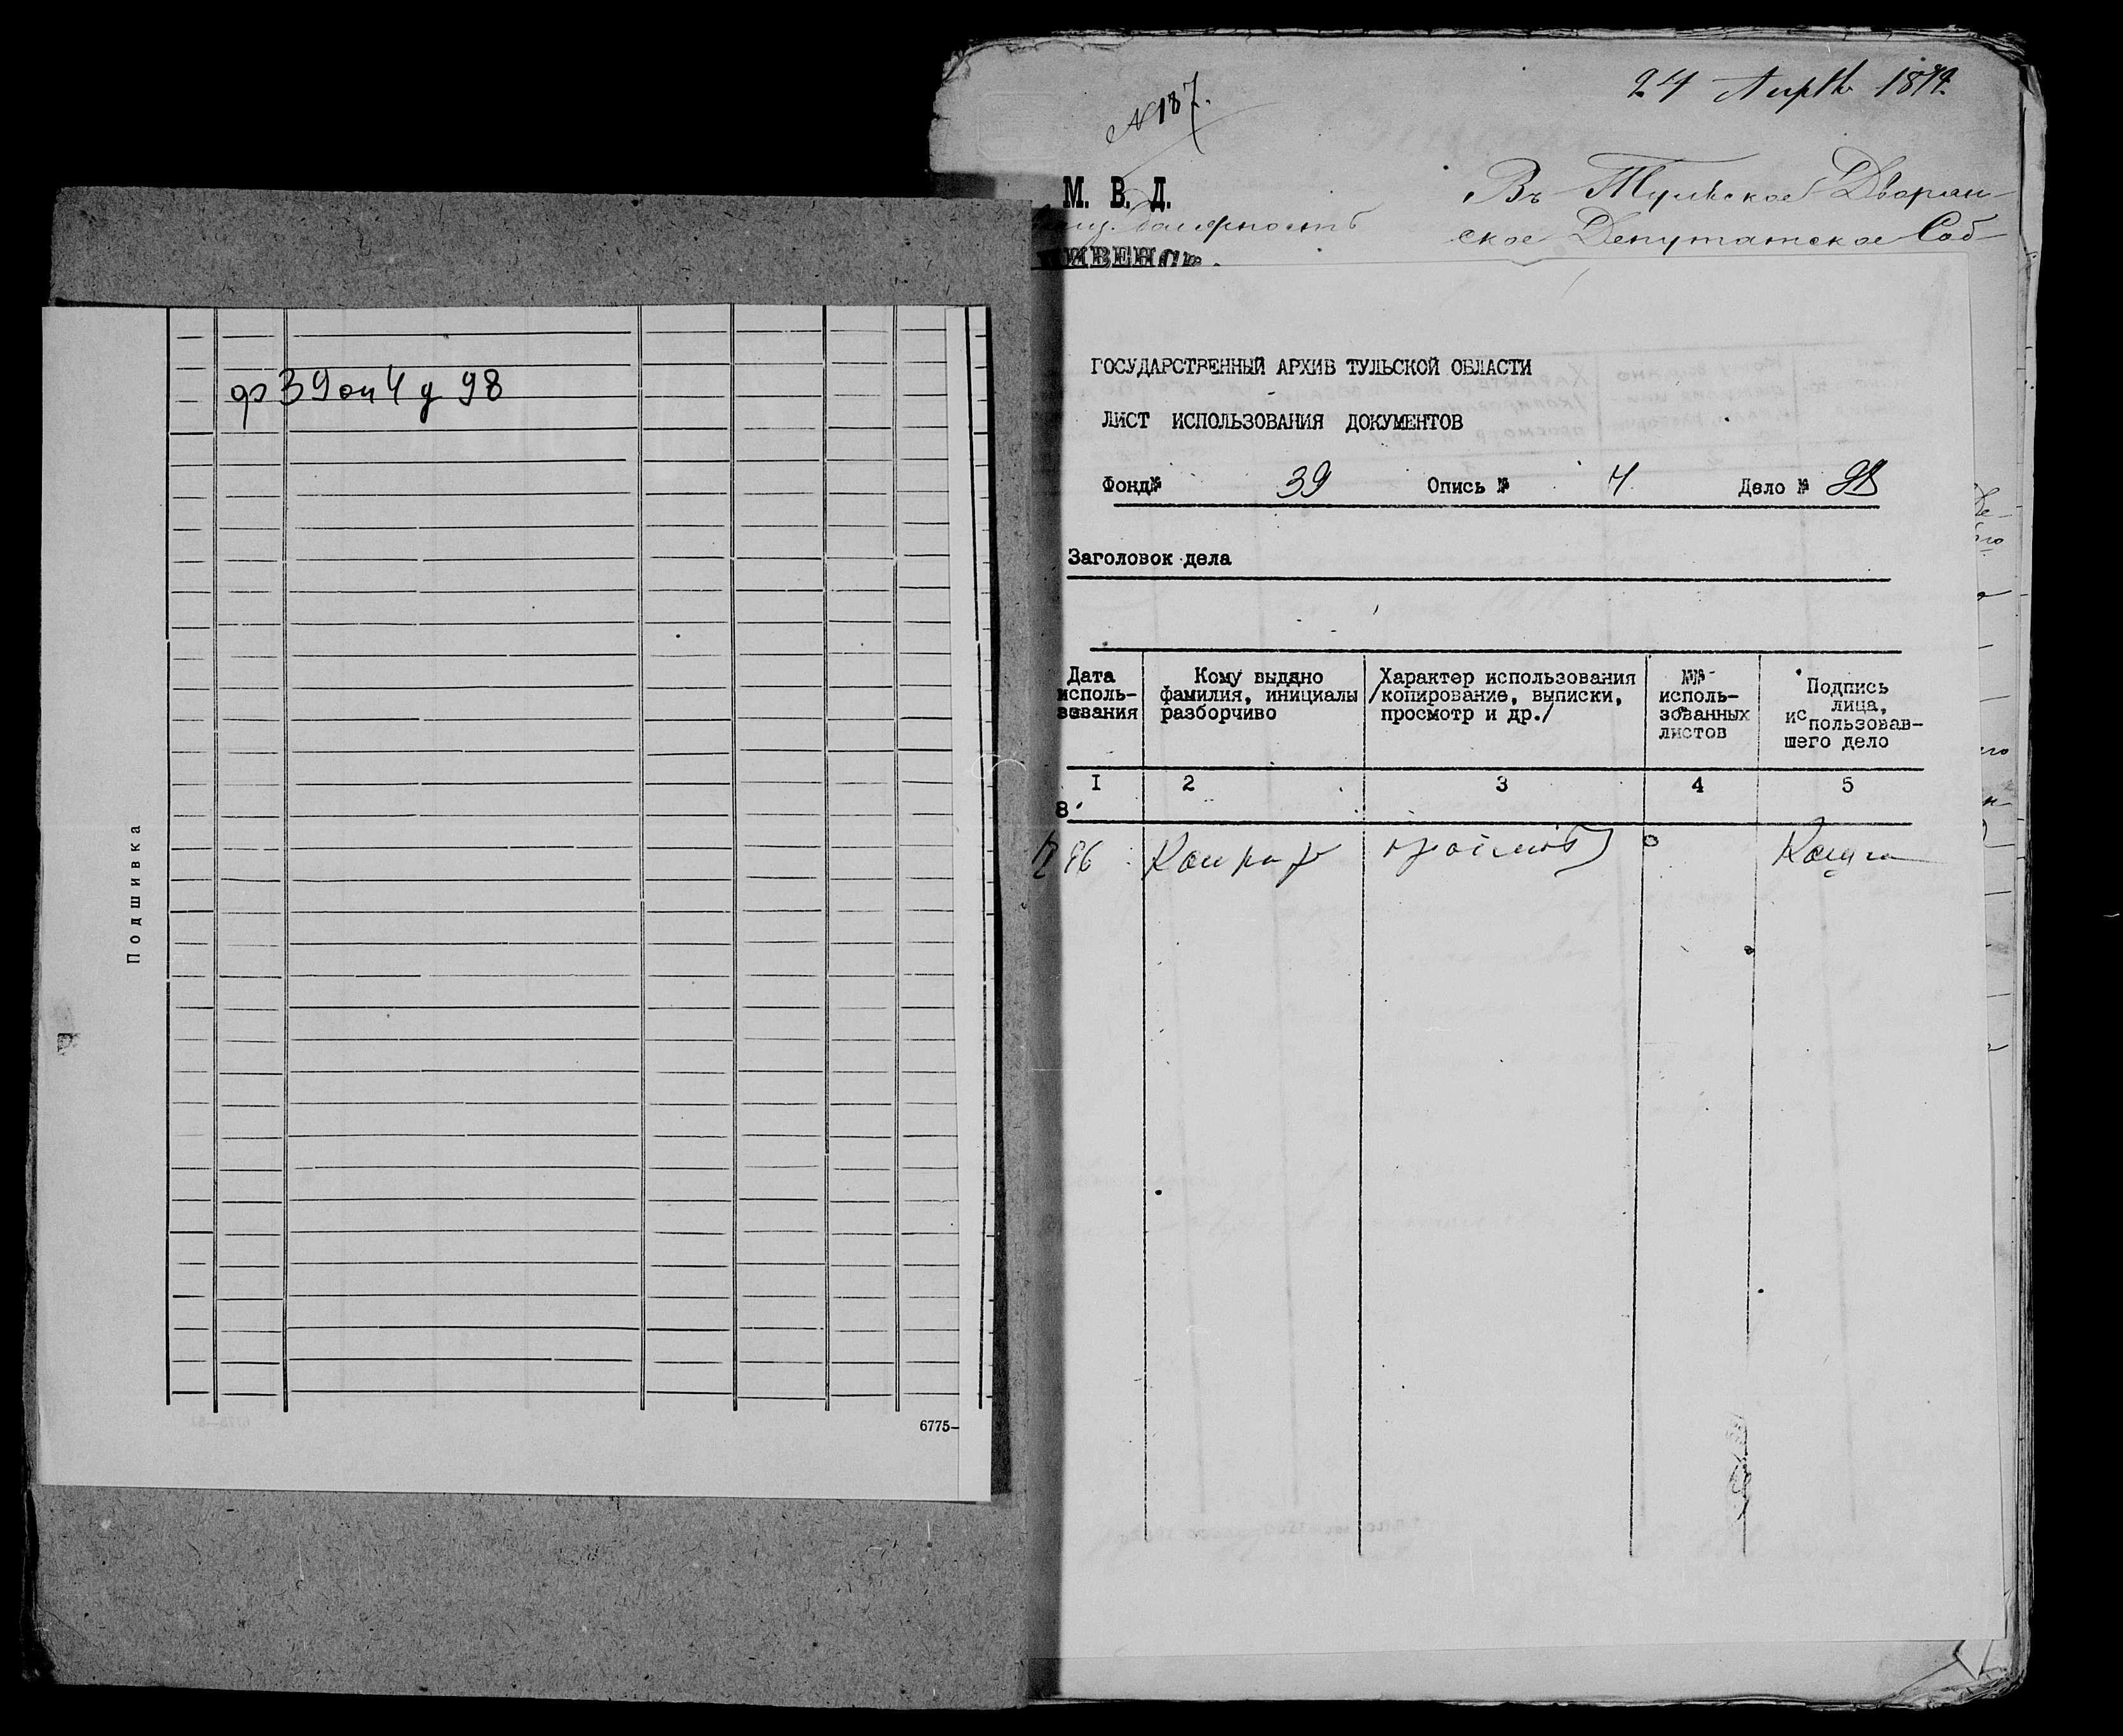 ф 39 оп 4 д 98
Подшивка
6775-
№ 187.
24 Апр. 1892
М. В. Д.
Въ Тульское Дворян-
ское Депутатское Соб-
ГОСУДАРСТВЕННЫЙ АРХИВ ТУЛЬСКОЙ ОБЛАСТИ
ЛИСТ ИСПОЛЬЗОВАНИЯ ДОКУМЕНТОВ
Фонд№ 39 Опись № 4 Дело № 98
Заголовок дела
Дата
исполь-
зования
Кому выдано
фамилия, инициалы
разборчиво
Характер использования
/копирование, выписки,
просмотр и др./
№№
исполь-
зованных
листов
Подпись
лица,
использовав-
шего дело
I 2 3 4 5
8
86 просмотр